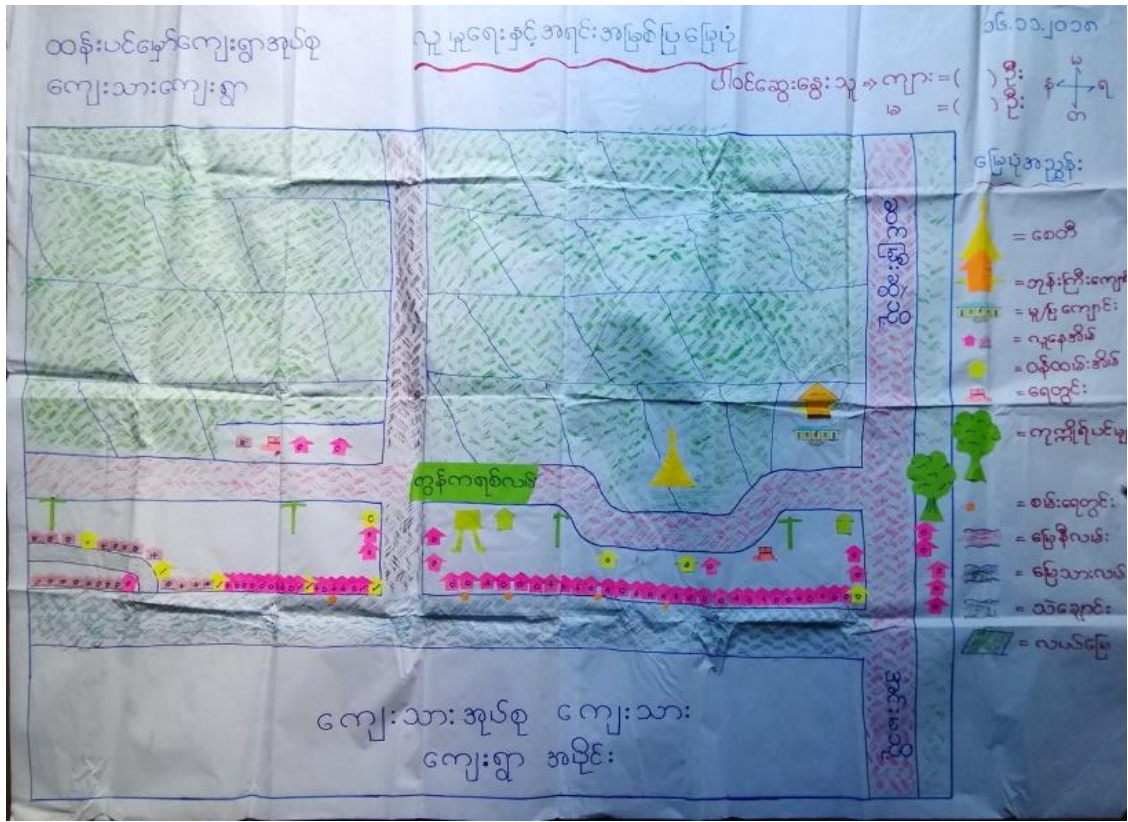 ထန်းပင်မှော်ကျေးရွာအုပ်စု
ကျေးသားကျေးရွာ
လူမှုရေးနှင့်အရင်းအမြစ်ပြမြေပုံ
၁၆.၁၁.၂၀၁၈
ပါဝင်ဆွေးနွေးသူ ⇒ ကျား =( ) ဦး
မ =( ) ဦး
မြေပုံအညွှန်း
= စေတီ
= ဘုန်းကြီးကျောင်း
= မူ/ပြကျောင်း
= လူနေအိမ်
= ဝန်ထမ်းအိမ်
= ရေတွင်း
= ကုက္ကိုရ်ပင်များ
= စမ်းရေတွင်း
= မြေနီလမ်း
= မြေသားလမ်း
= သဲချောင်း
= လယ်မြေ
တွန်ကရစ်လမ်း
ကျေးသားအုပ်စု ကျေးသား
ကျေးရွာ အပိုင်း